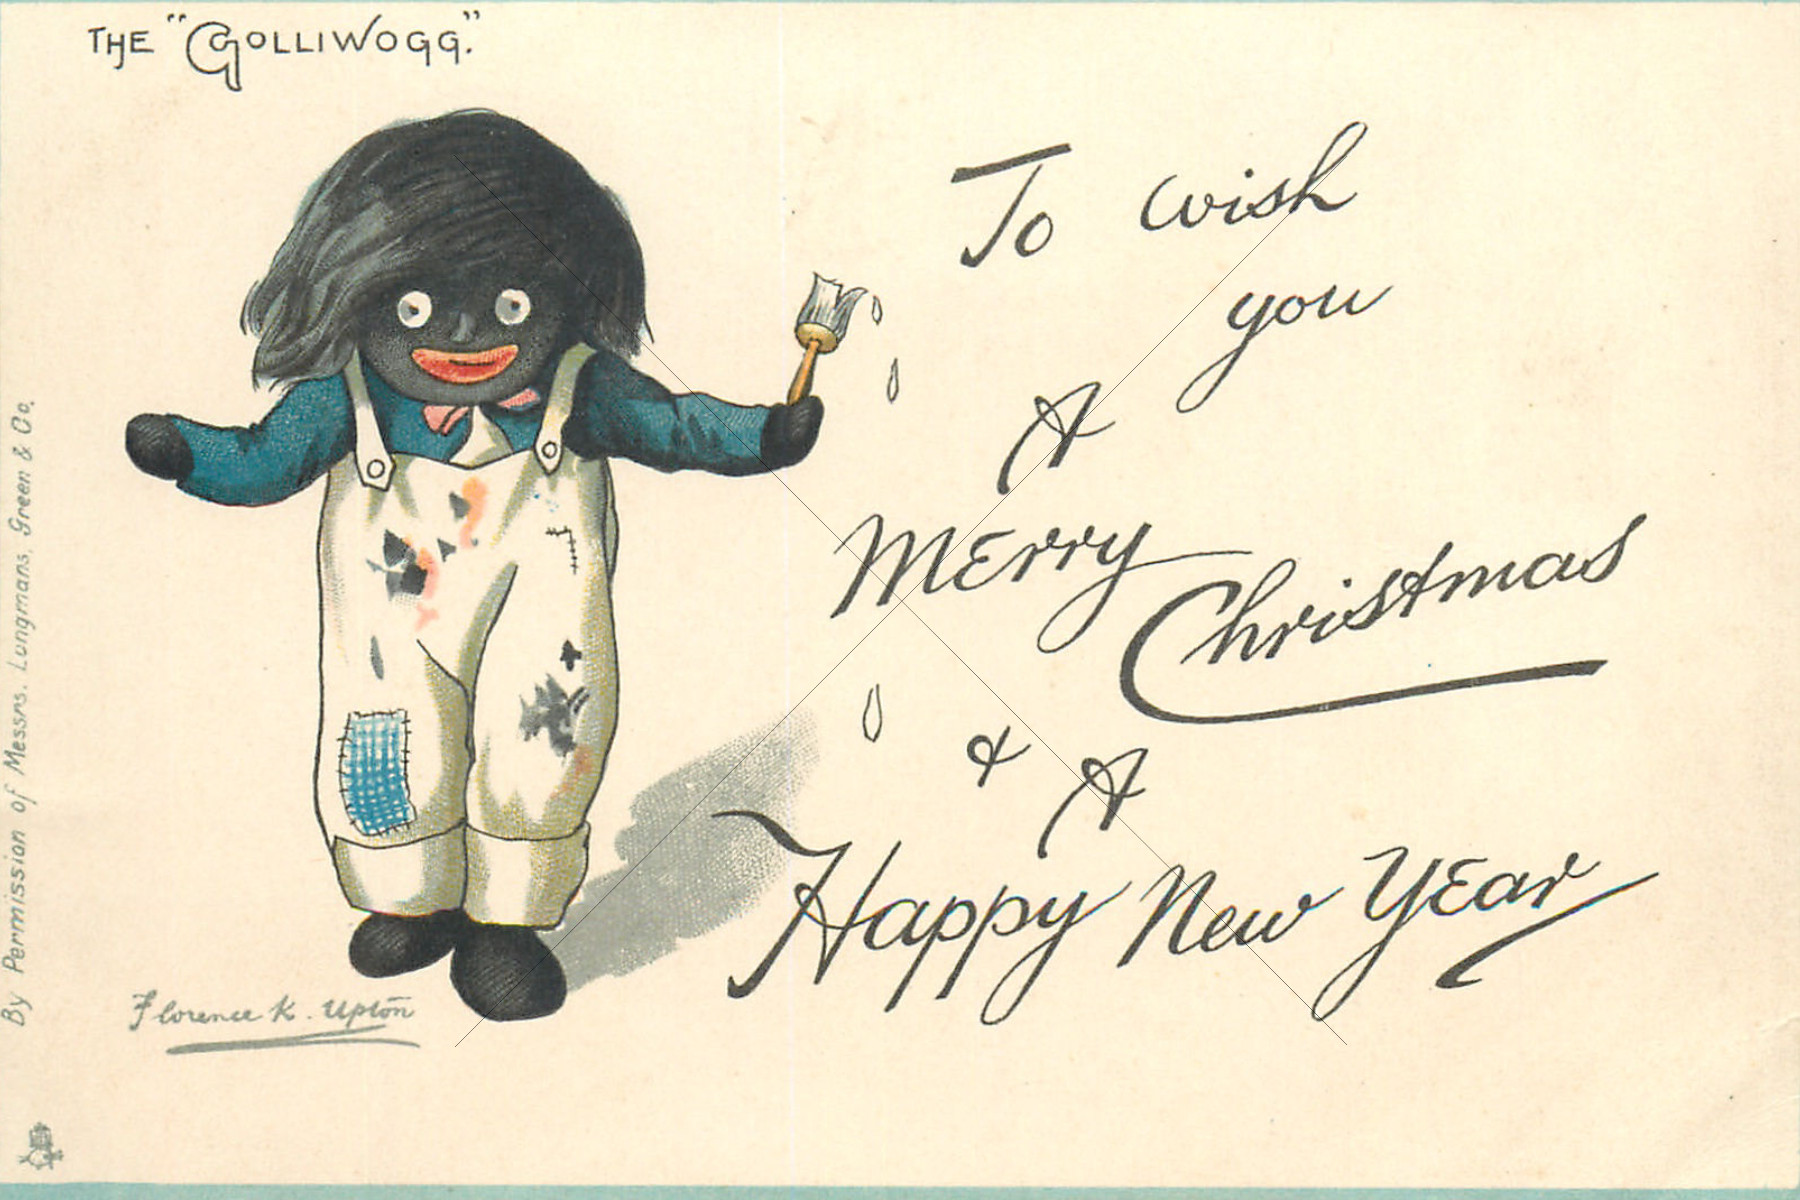 THE "GOLLIWOGG."
To wish
you
A
MErry
Christmas
& A
Happy New YEar
By Permission of Messrs. Longmans, Green & Co.
Florence K. Upton